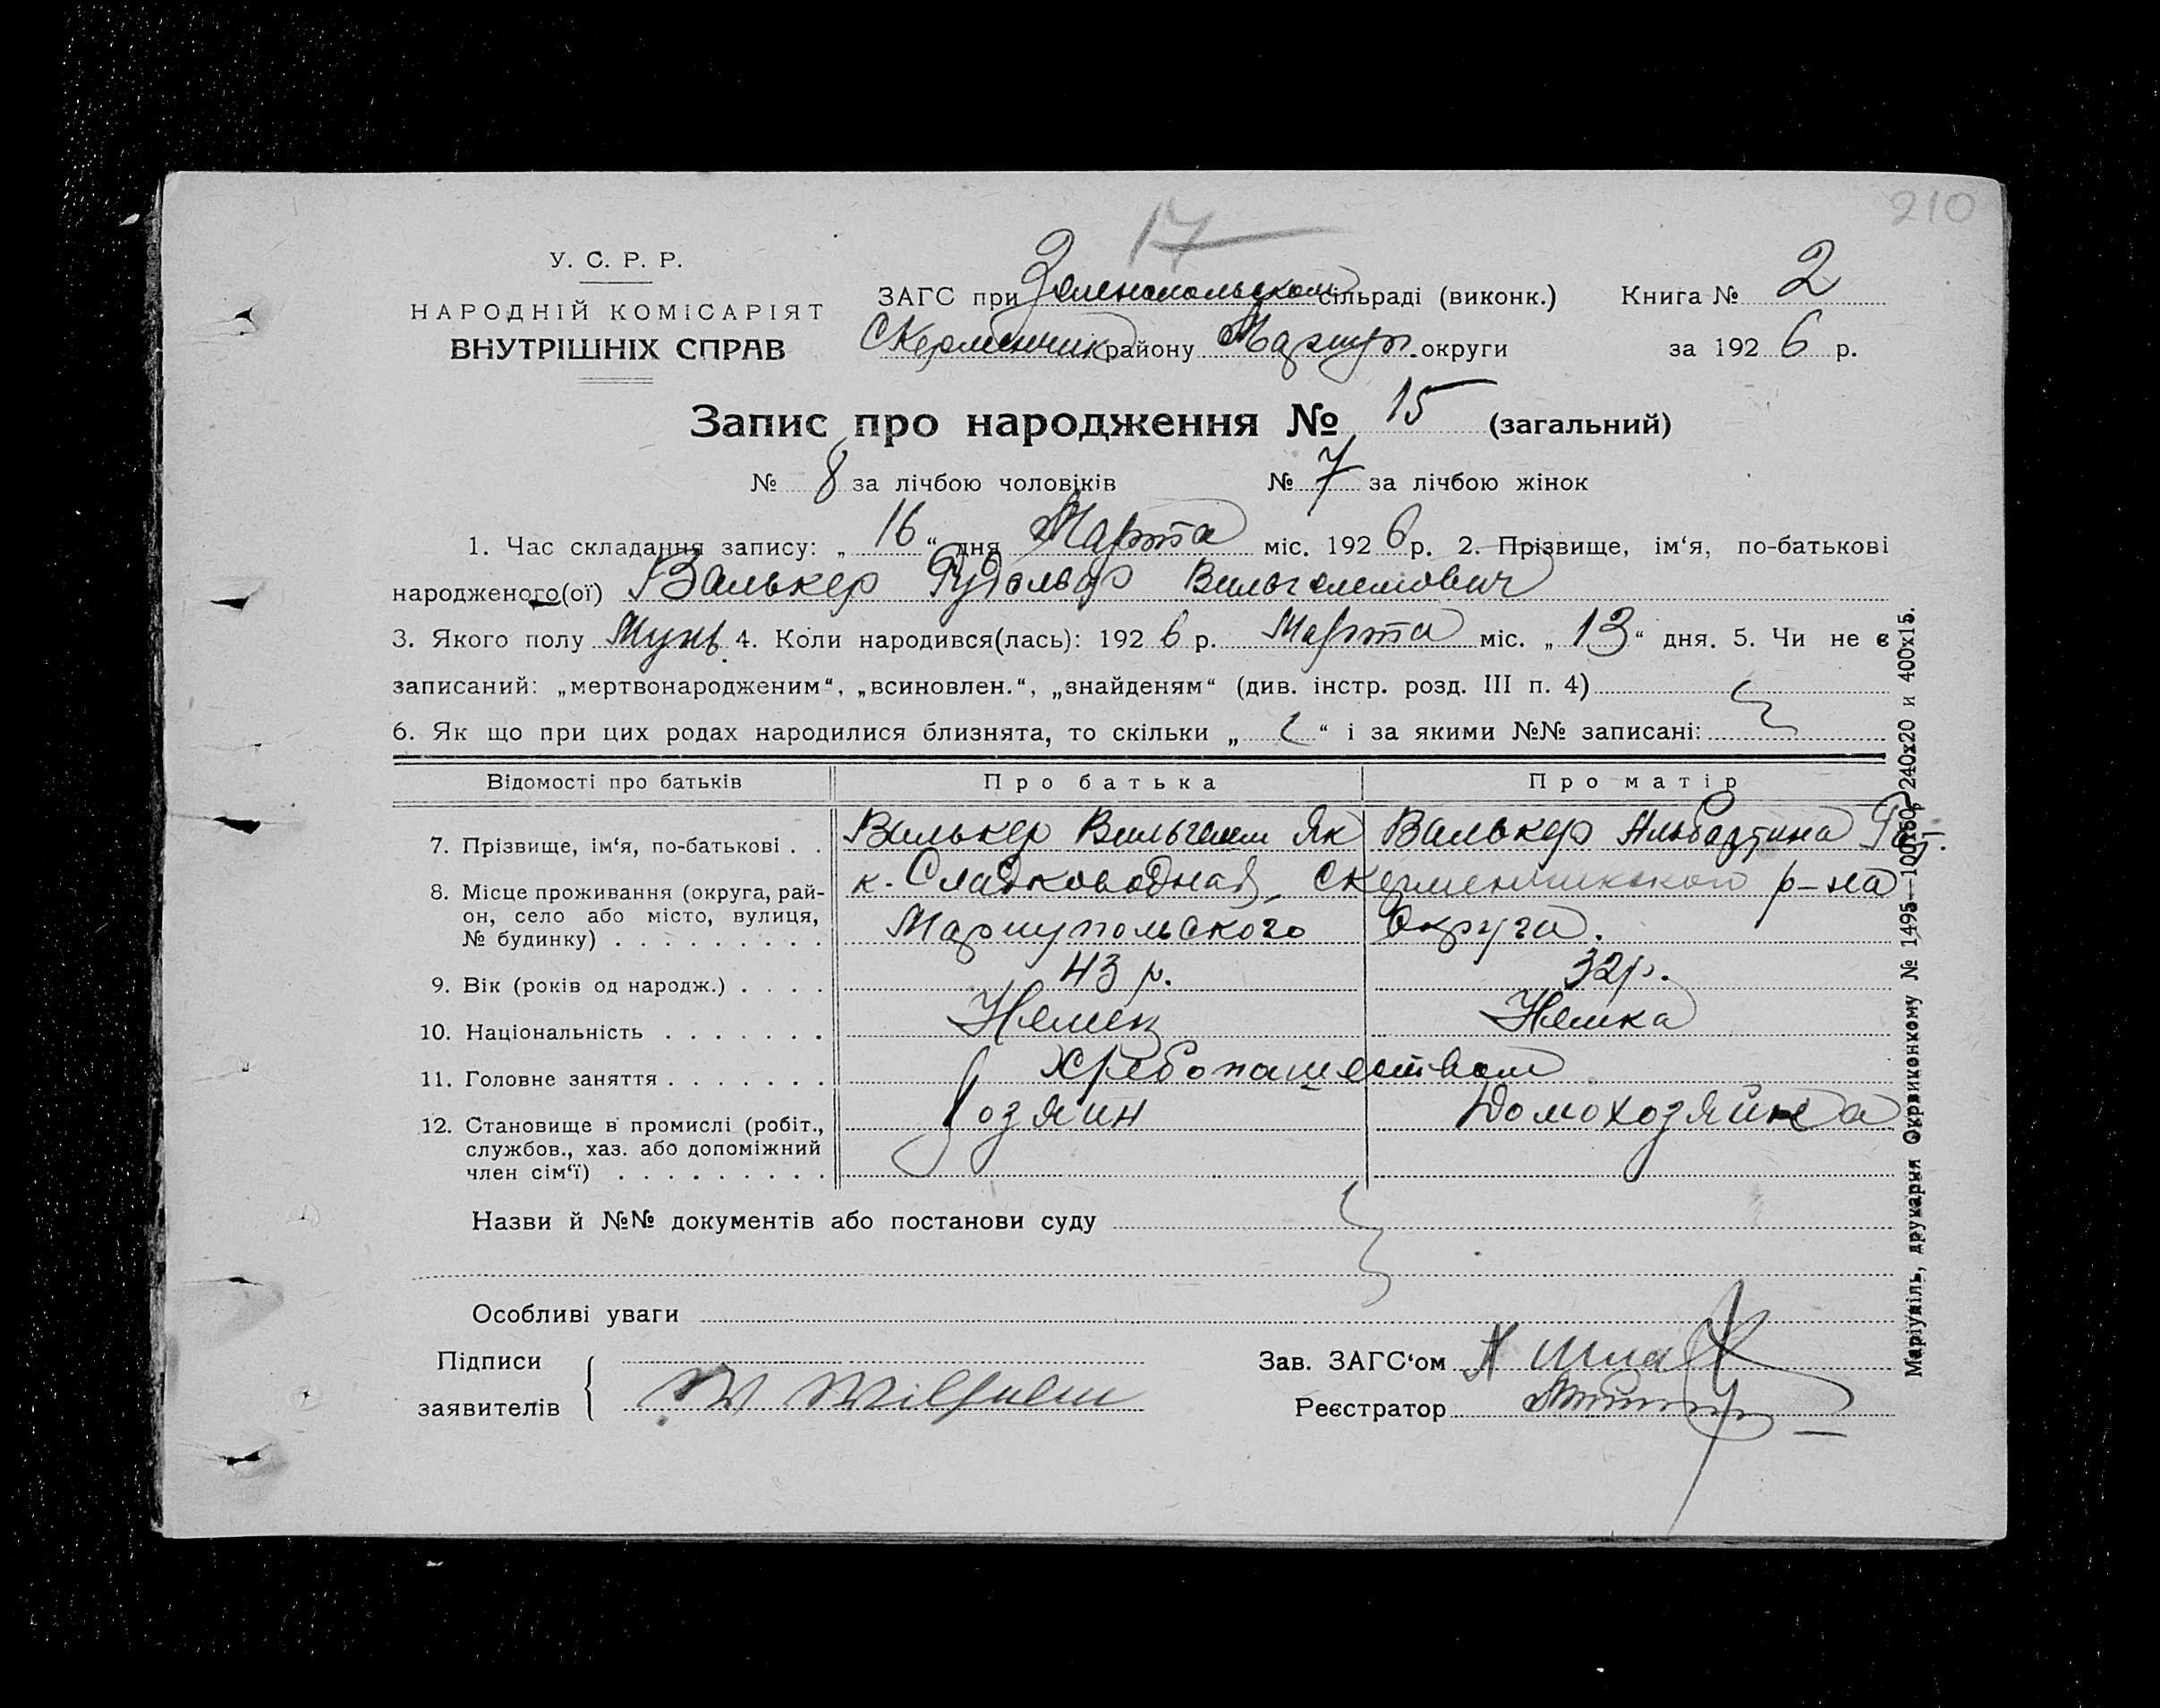 210
17
У. С. Р. Р.
НАРОДНІЙ КОМІСАРІЯТ
ВНУТРІШНІХ СПРАВ
ЗАГС при Зеленопольском сільраді (виконк.) Книга № 2
Скерменчик району Мариуп. округи за 1926 р.
Запис про народження № 15 (загальний)
№ 8 за лічбою чоловіків № 7 за лічбою жінок
1. Час складання запису: „16“ дня Марта міс. 1926 р. 2. Прізвище, ім‘я, по-батькові
народженого(ої) Валькер Рудольф Вильгелемович
3. Якого полу Мужь. 4. Коли народився(лась): 1926 р. Марта міс. „13“ дня. 5. Чи не є
записаний: „мертвонародженим“, „всиновлен.“, „знайденям“ (див. інстр. розд. III п. 4)
6. Як що при цих родах народилися близнята, то скільки „ “ і за якими №№ записані:
Відомості про батьків Про батька Про матір
7. Прізвище, ім‘я, по-батькові . . Валькер Вильгелем Як Валькер Альбертина
8. Місце проживання (округа, рай- к. Сладководная, Скерменчикского р-на
он, село або місто, вулиця,
№ будинку) . . . . . . . . . Мариупольского Округа.
9. Вік (років од народж.) . . . . 43 р. 32 р.
10. Національність . . . . . . . Немец Немка
11. Головне заняття . . . . . . . Хребопашеством
12. Становище в промислі (робіт., Хозяин Домохозяйка
службов., хаз. або допоміжний
член сім‘ї) . . . . . . . . .
Назви й №№ документів або постанови суду
Особливі уваги
Підписи
заявителів W Wilhelm
Зав. ЗАГС‘ом
Реєстратор
Маріупіль, друкарня Окрвиконкому № 1495—100х50, 240х20 и 400х15.